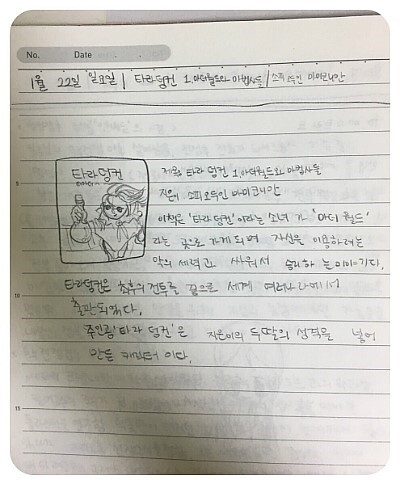 No. Date
1월 22일 일요일 / 타라덩컨 1.아더월드와 마법사들 / 소피 오두인 마미코니안
타라덩컨
제목: 타라 덩컨 1.아더월드와 마법사들
지은이: 소피 오두인 마미코니안
이책은 '타라덩컨' 이라는 소녀 가 '아더 월드'
라는 곳으로 가게되며 자신을 이용하려는
악의 세력과 싸워서 승리하 는 이야기다.
타라덩컨은 최후의 전투를 끝으로 세계 여러나라에서
출판되었다.
주인공 '타라 덩컨' 은 지은이의 두딸의 성격을 넣어
만든 캐릭터 이다.
5
10
15